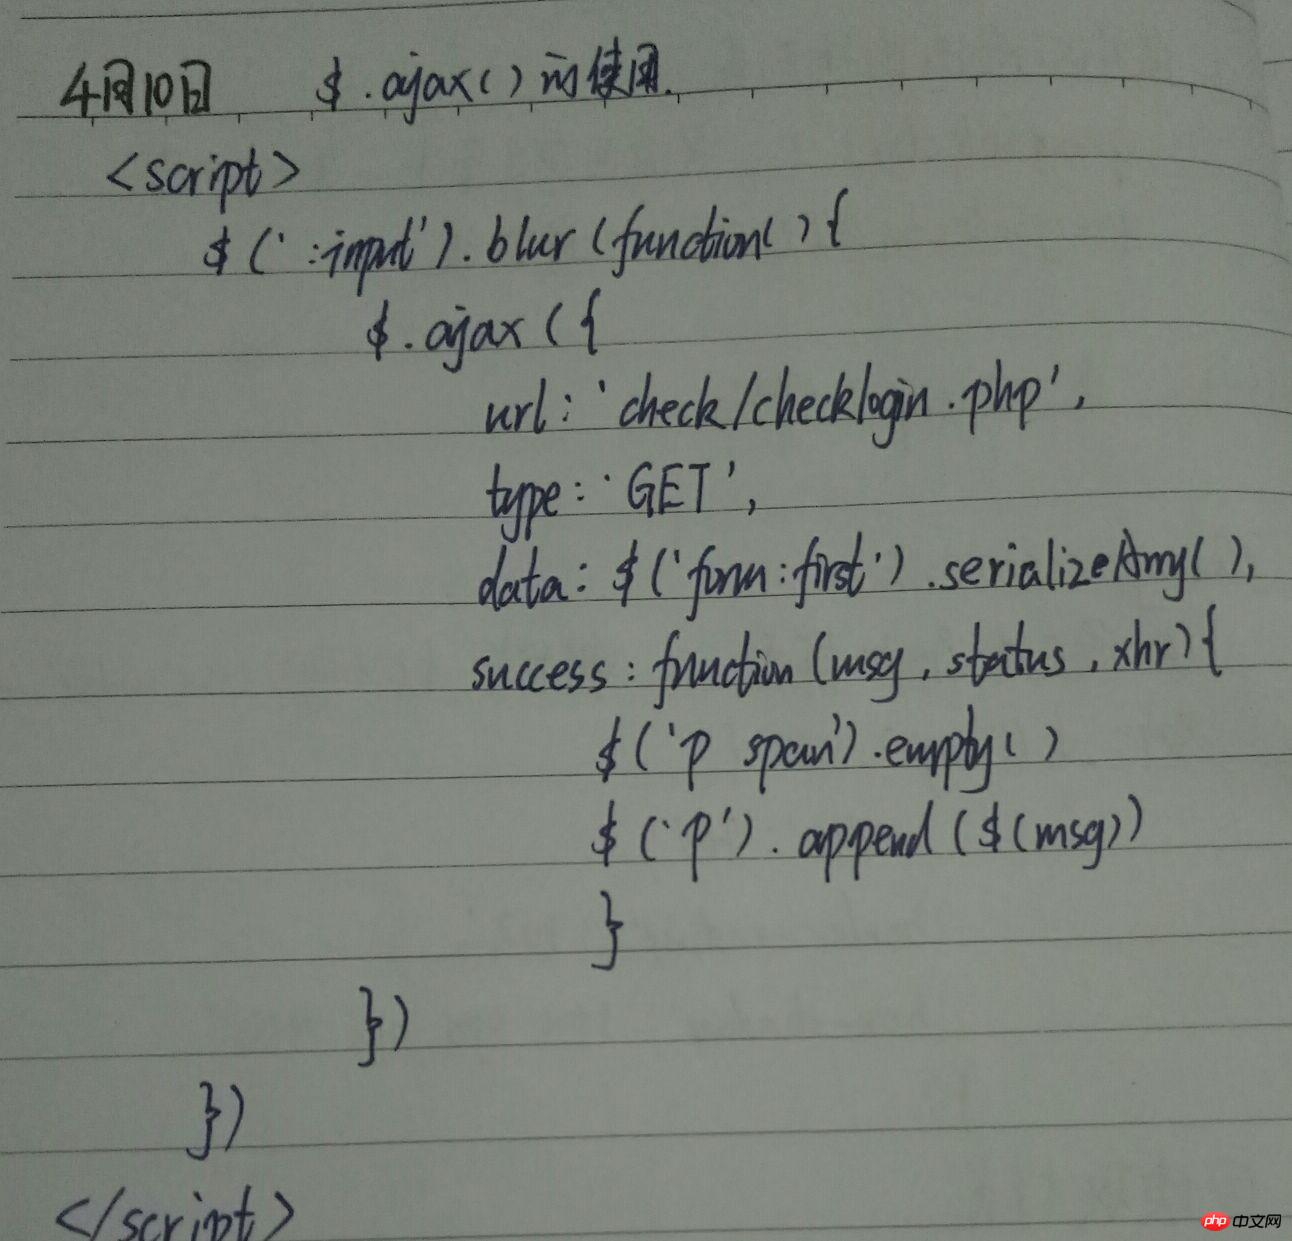 4月10日 $.ajax()的使用.
<script>
$(':input').blur(function(){
$.ajax({
url:'check/checklogin.php',
type:'GET',
data:$('form:first').serializeArray(),
success:function(msg,status,xhr){
$('p span').empty()
$('p').append($(msg))
}
})
})
</script>
php中文网